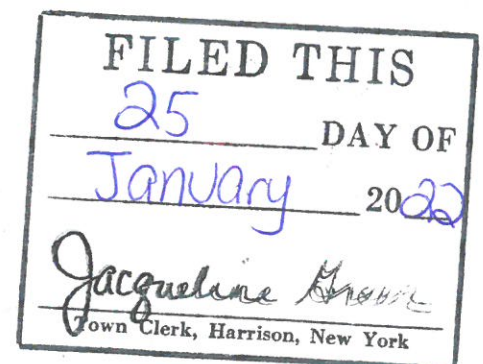 FILED THIS
25 DAY OF
January 2022
Jacqueline
Town Clerk, Harrison, New York